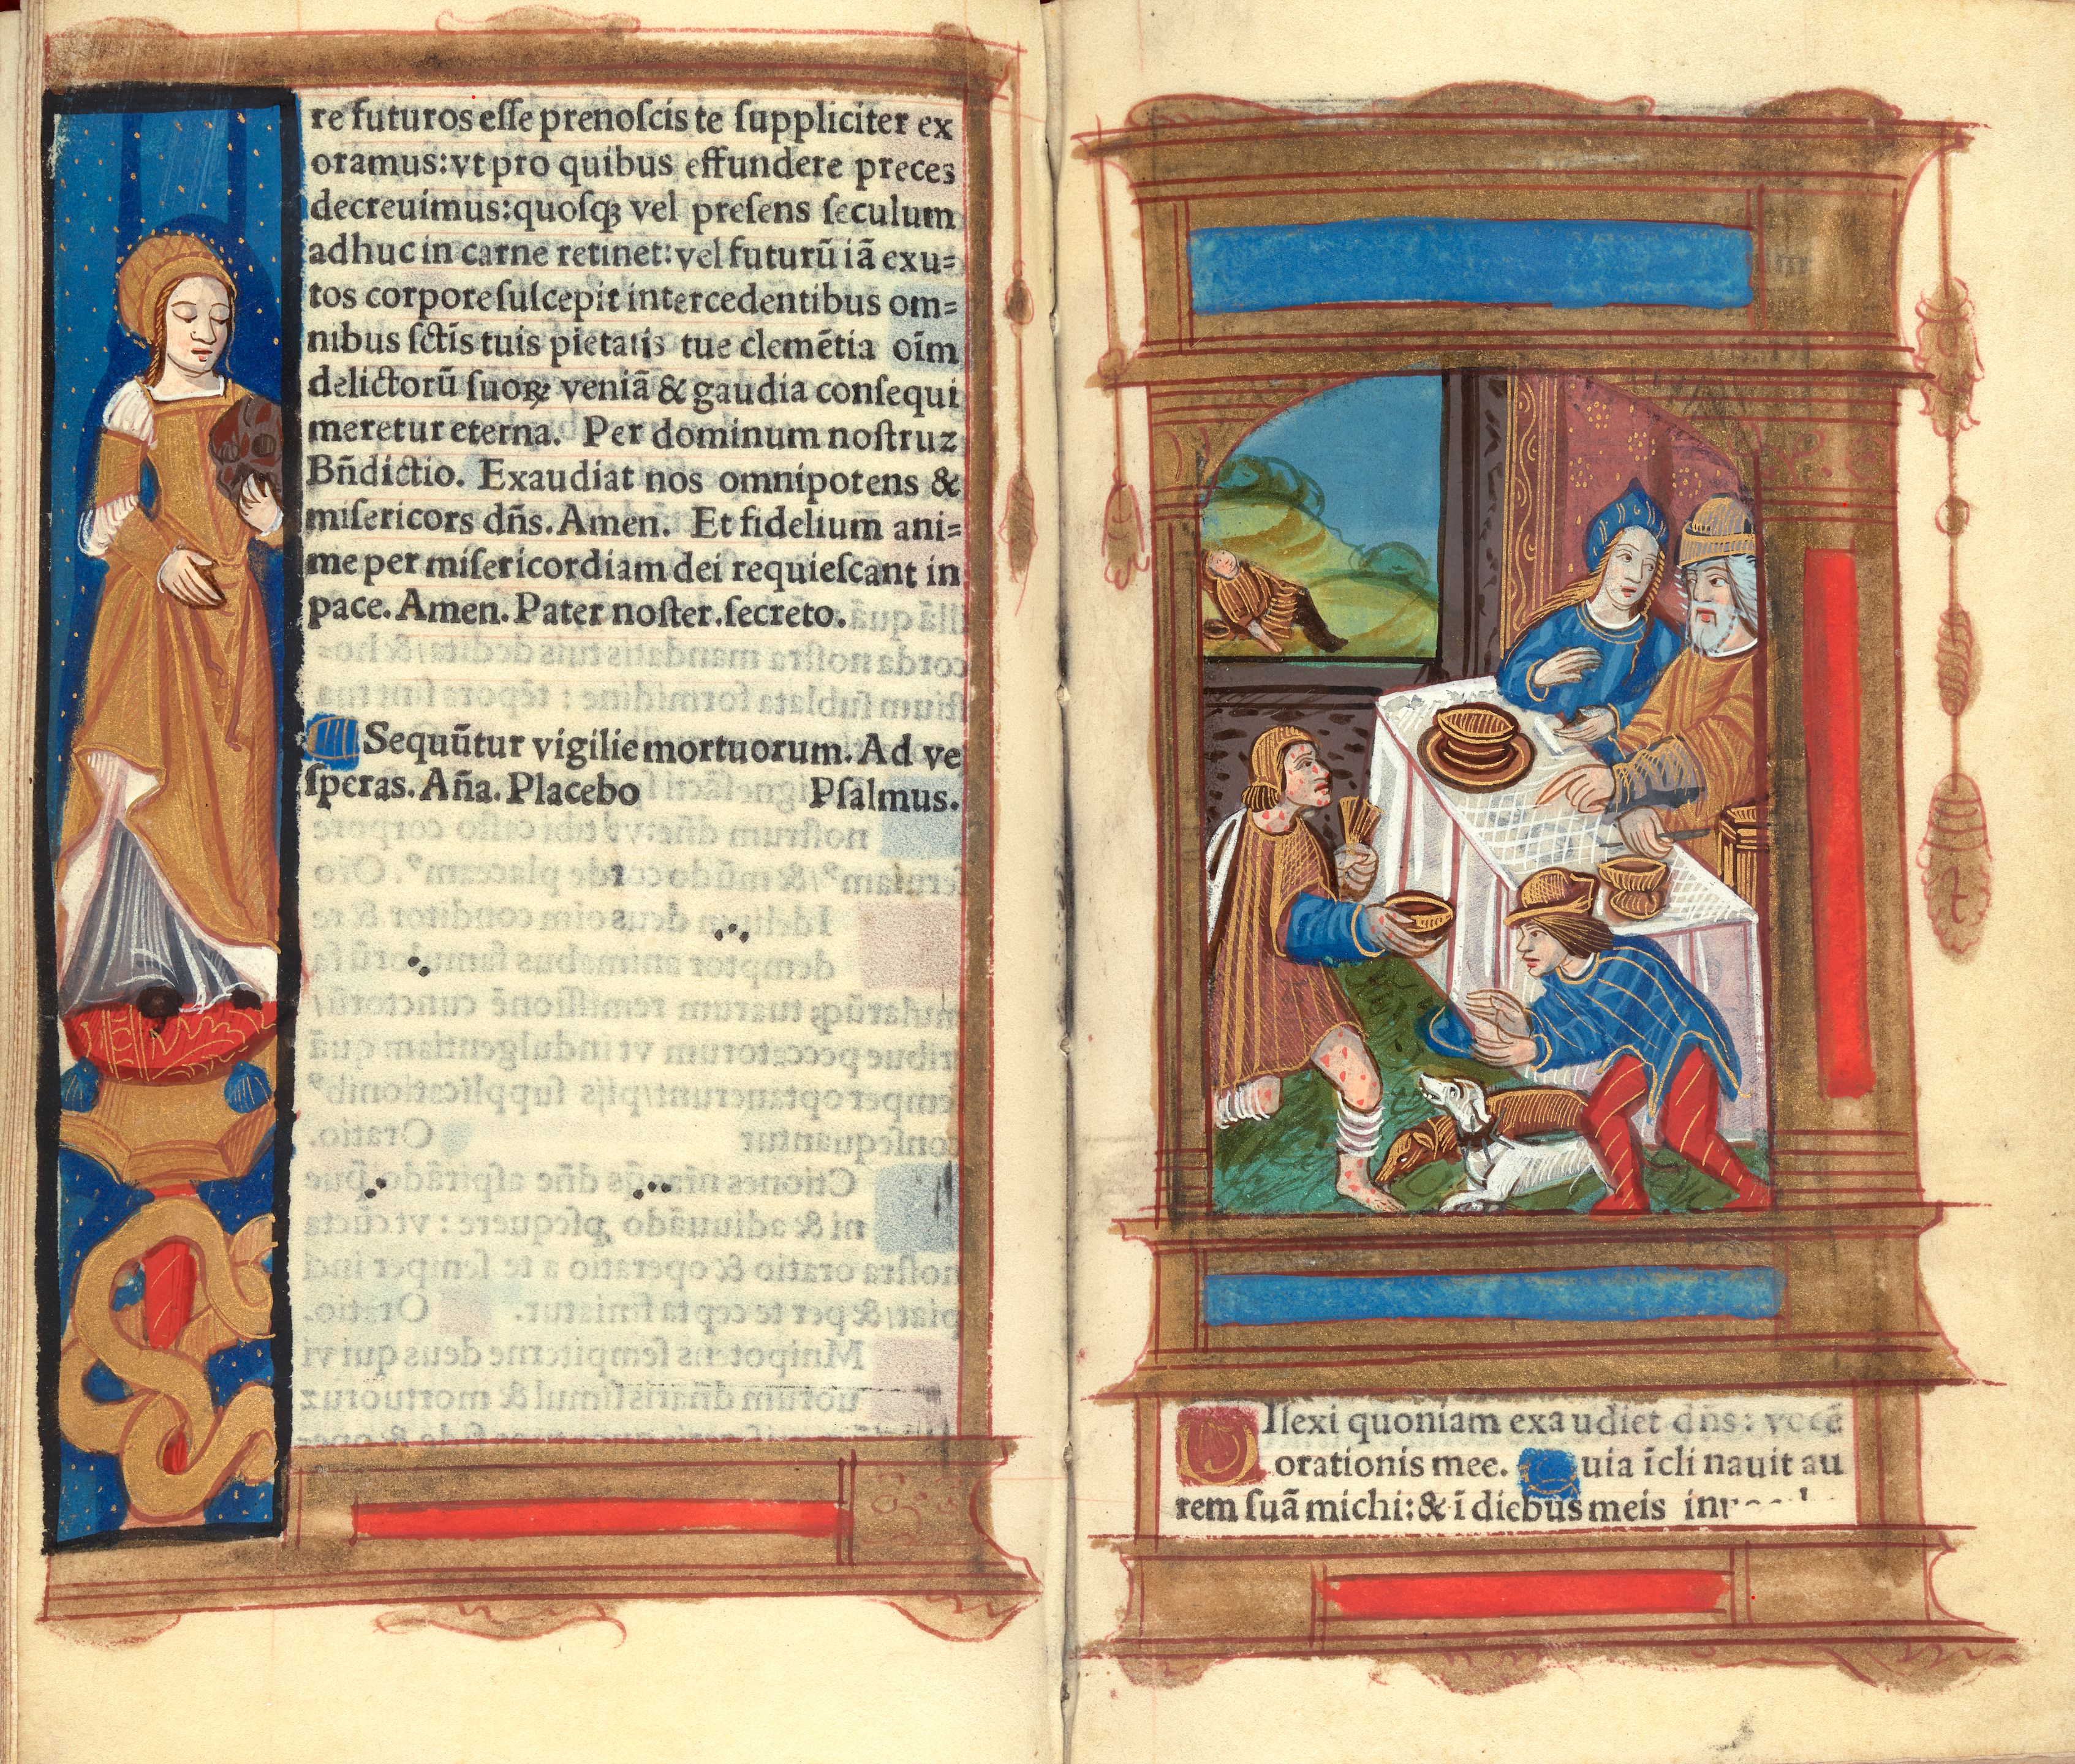 re futuros eſſe prenoſcis te ſuppliciter ex
oramus: vt pro quibus effundere preces
decreuimus: quoſqꝫ vel preſens ſeculum
adhuc in carne retinet: vel futurū iā exu⸗
tos corpore ſuſcepit intercedentibus om⸗
nibus ſctīs tuis pietatis tue clemētia oīm
delictorū ſuoꝝ veniā & gaudia conſequi
meretur eterna. Per dominum noſtruz
Bñdictio. Exaudiat nos omnipotens &
miſericors dñs. Amen. Et fidelium ani⸗
me per miſericordiam dei requieſcant in
pace. Amen. Pater noſter. ſecreto.
Sequūtur vigilie mortuorum. Ad ve
ſperas. Aña. Placebo Pſalmus.
DIlexi quoniam exaudiet dñs: vocē
orationis mee. Quia īclinauit au
rem ſuā michi: & ī diebus meis